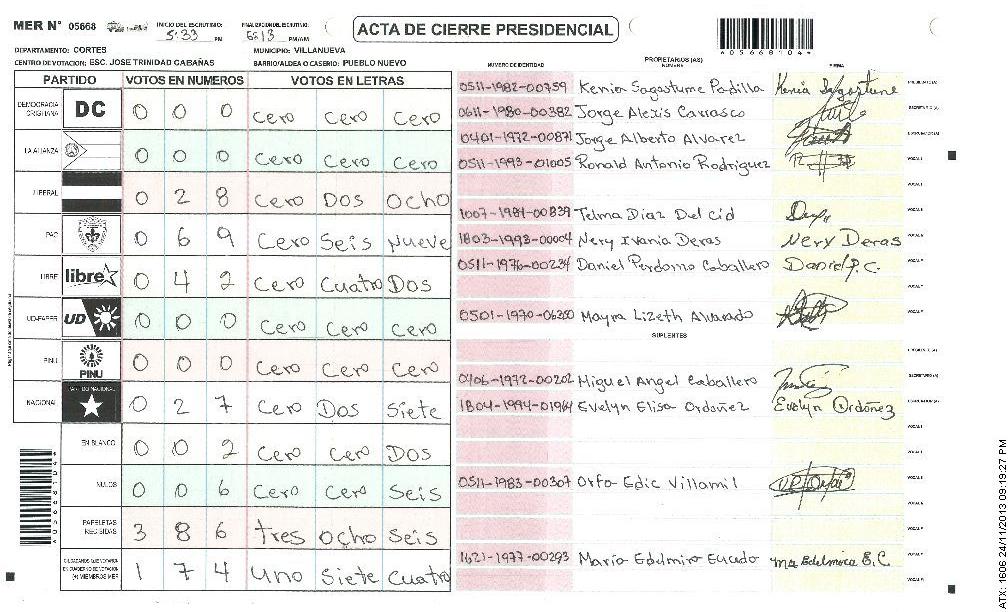 MER N° 05668 INICIO DEL ESCRUTINIO: 5:33 PM FINALIZACION DEL ESCRUTINIO: 6:13 PM/AM
ACTA DE CIERRE PRESIDENCIAL
*05668104*
DEPARTAMENTO: CORTES MUNICIPIO: VILLANUEVA
CENTRO DE VOTACION: ESC. JOSE TRINIDAD CABAÑAS BARRIO/ALDEA O CASERIO: PUEBLO NUEVO
PARTIDO VOTOS EN NUMEROS VOTOS EN LETRAS
DEMOCRACIA CRISTIANA DC 0 0 0 Cero Cero Cero
LA ALIANZA 0 0 0 Cero Cero Cero
LIBERAL 0 2 8 Cero Dos Ocho
PAC 0 6 9 Cero Seis Nueve
LIBRE libre 0 4 2 Cero Cuatro Dos
UD-FAPER UD 0 0 0 Cero Cero Cero
PINU PINU 0 0 0 Cero Cero Cero
NACIONAL PARTIDO NACIONAL 0 2 7 Cero Dos Siete
EN BLANCO 0 0 2 Cero Cero Dos
NULOS 0 0 6 Cero Cero Seis
PAPELETAS RECIBIDAS 3 8 6 tres ocho Seis
CIUDADANOS QUE VOTARON EN CUADERNO DE VOTACION (+) MIEMBROS MER 1 7 4 Uno Siete Cuatro
PROPIETARIOS (AS)
NUMERO DE IDENTIDAD NOMBRE FIRMA
0511-1982-00759 Kenia Sagastume Padilla Kenia Sagastume PRESIDENTE (A)
0611-1980-00382 Jorge Alexis Carrasco SECRETARIO (A)
0401-1972-00871 Jorge Alberto Alvarez ESCRUTADOR (A)
0511-1993-01005 Ronald Antonio Rodriguez VOCAL I
1007-1984-00839 Telma Diaz Del cid
1803-1993-00004 Nery Ivania Deras Nery Deras
0511-1976-00234 Daniel Perdomo Caballero Daniel P.C.
0501-1970-06380 Mayra Lizeth Alvarado
SUPLENTES
PRESIDENTE (A)
0406-1972-00202 Miguel Angel Caballero SECRETARIO (A)
1804-1994-01964 Evelyn Elisa Ordoñez Evelyn Ordoñez ESCRUTADOR (A)
0511-1983-00307 Orfa Edic Villamil
1621-1977-00293 Maria Edelmira Euceda Ma Edelmira E.C.
ATX: 1606 24/11/2013 09:19:27 PM